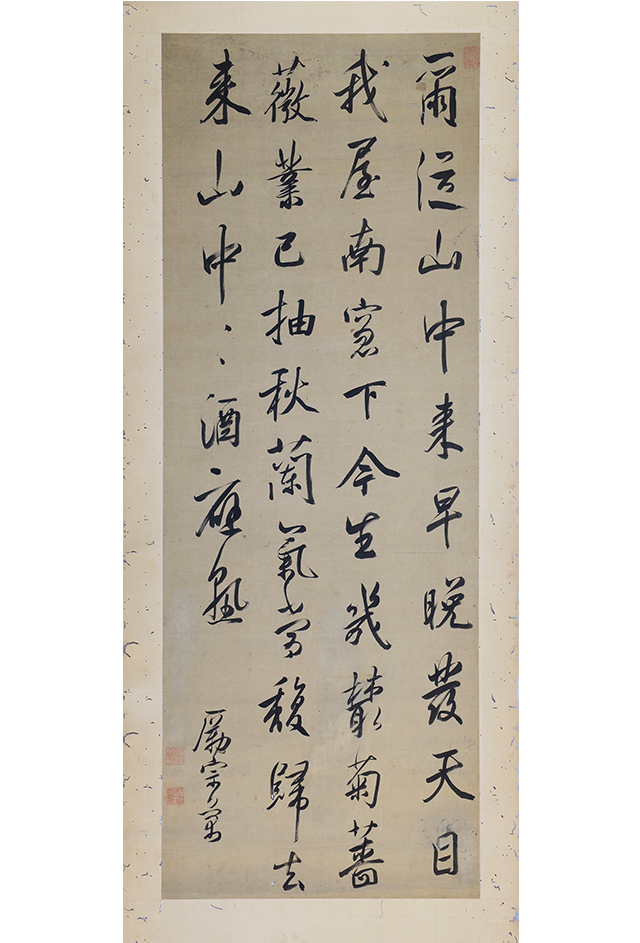 爾從山中來早晚發天目
我屋南窗下今生幾叢菊薔
薇葉已抽秋蘭氣當馥歸去
來山中山中酒應熟
勵宗萬